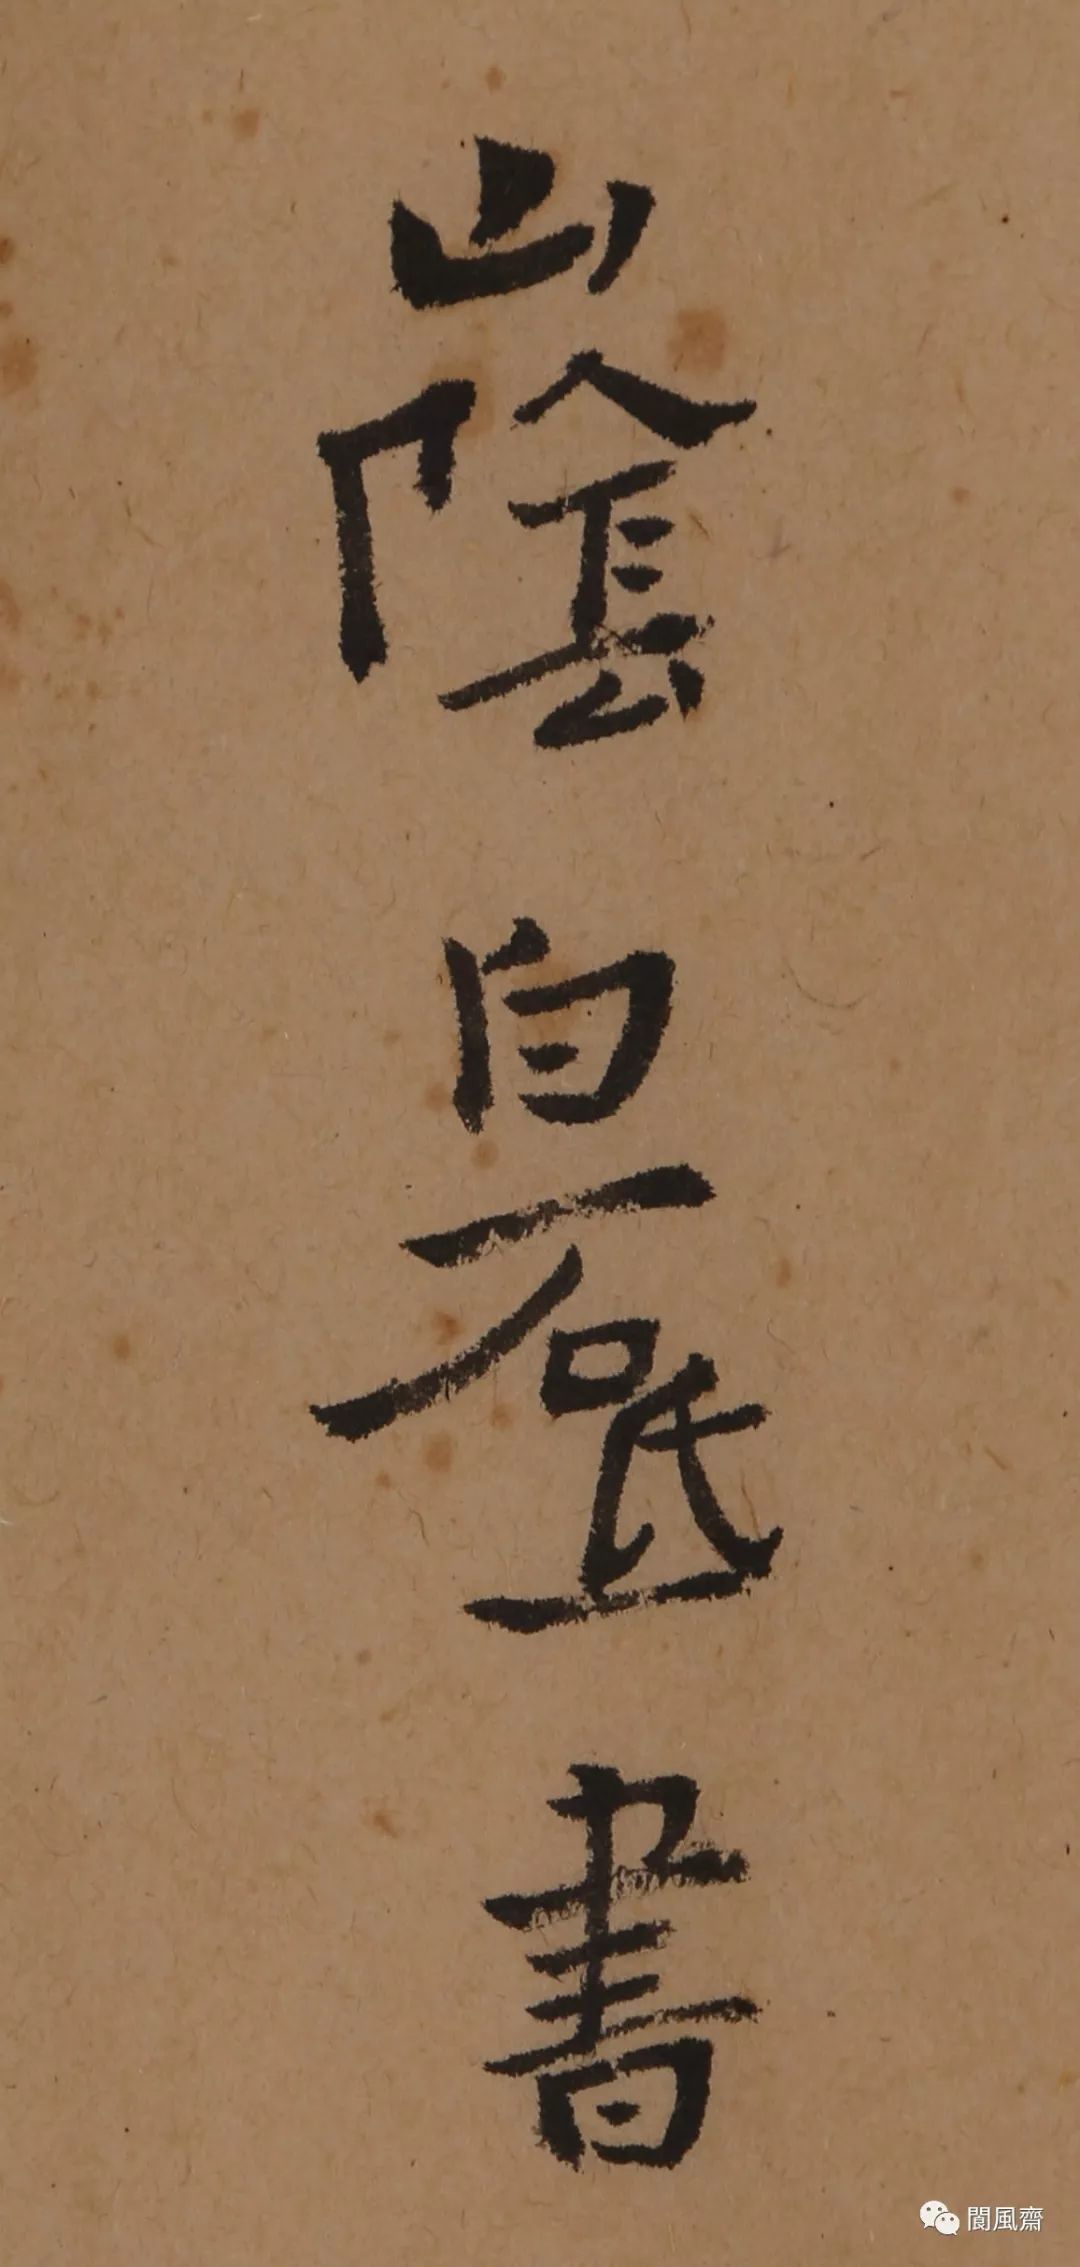 山陰白砥書
閬風齋